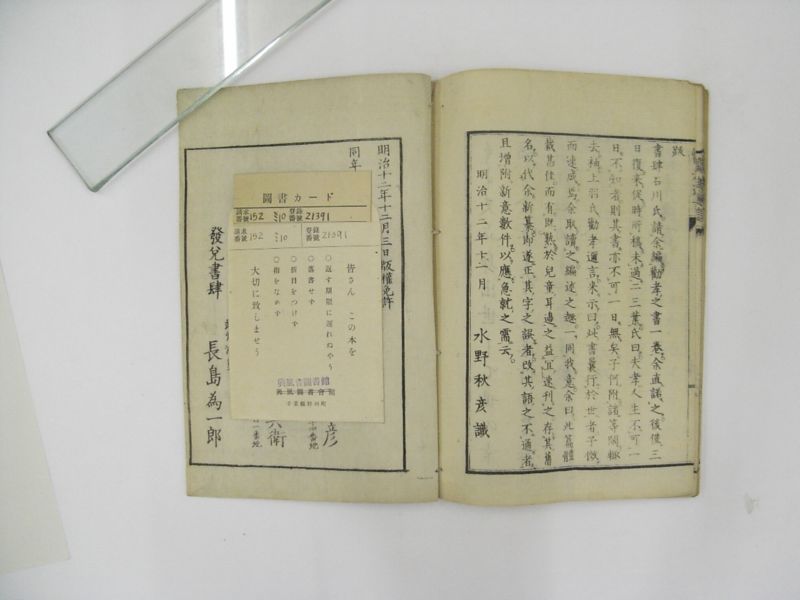 跋
書肆石川氏請余編勸孝之書一卷余直諾之後僅三
日復來促時所稿未過二三葉氏曰夫孝人生不可一
日不知者則其書亦不可一日無矣子何附諸等閑輒
去袖上羽氏勸孝邇言來示曰此書曩行於世者子傚
而速成焉余取讀之編述之趣一同我意余曰此篇體
裁甚佳而有既熟於兒童耳邊之益宜速刊之存其舊
名以代余新纂即遂正其字之誤者改其語之不通者
且增附新意數件以應急就之需云
明治十二年十二月 水野秋彦識
明治十二年十二月三日版權免許
同年
圖書カード
請求番號 152 ミ10 登錄番號 21391
請求番號 152 ミ10 登錄番號 21391
皆さん この本を
○返す期限に遲れぬやう
○落書せず
○折目をつけず
○指をなめず
大切に致しませう
圖書館
千葉縣野田町
彦
十四番地
兵衛
十一番地
發兌書肆
長島為一郎